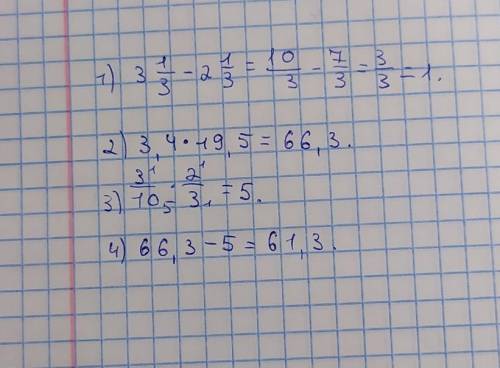 1) 3 1/3 - 2 1/3 = 10/3 - 7/3 = 3/3 = 1.
2) 3,4 • 19,5 = 66,3.
3) 3¹/10₅ · 2¹/3₁ = 5.
4) 66,3 - 5 = 61,3.